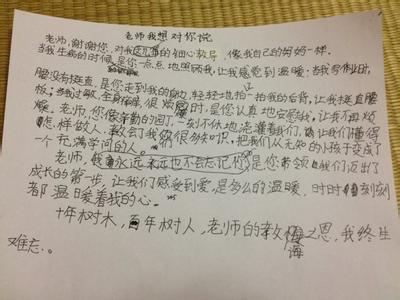 老师我想对你说
老师,谢谢您,对我的细心教导,像我自己的妈妈一样。
当我生病的时候,是你一点点地照顾我,让我感觉到温暖;当我写作业时,
腰没有挺直,是您走到我的身边,轻轻地拍一拍我的后背,让我挺直腰
板;当我过敏,全身痒,很烦时,是您认真地安慰我,让我不再烦
燥。老师,您像辛勤的园丁,一刻不休地浇灌着我们,让我们懂得
怎样做人,教会我们很多知识,把我们从无知的小孩子变成了
一个充满学问的人。
老师,我永远永远也不会忘记你,是您带领我们迈出了
成长的第一步,让我们感受到爱,是多么的温暖,时时刻刻
都温日爱着我的心。
十年树木,百年树人,老师的教诲之恩,我终生
难忘。